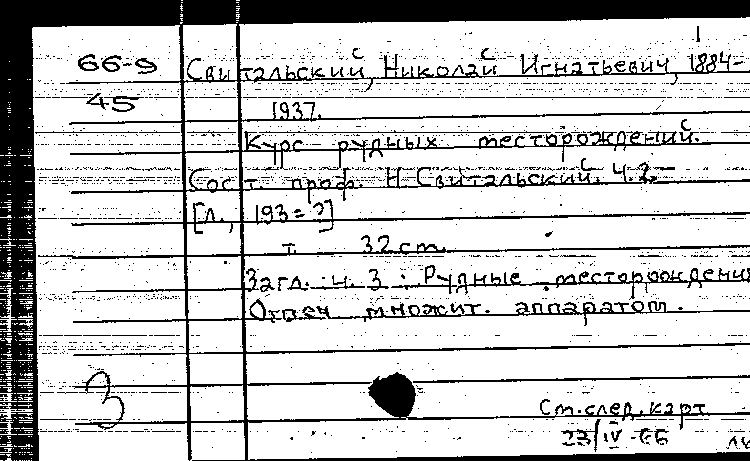 1
66-9 Свитальский, Николай Игнатьевич, 1884-
45 1937.
Курс рудных месторождений.
Сост. проф. Н. Свитальский. Ч. 2-
[Л., 193=?]
т. 32 cm.
Загл. ч. 3 : Рудные месторождения
Отпеч множит. аппаратом.
3
См. след. карт
23/IV-66